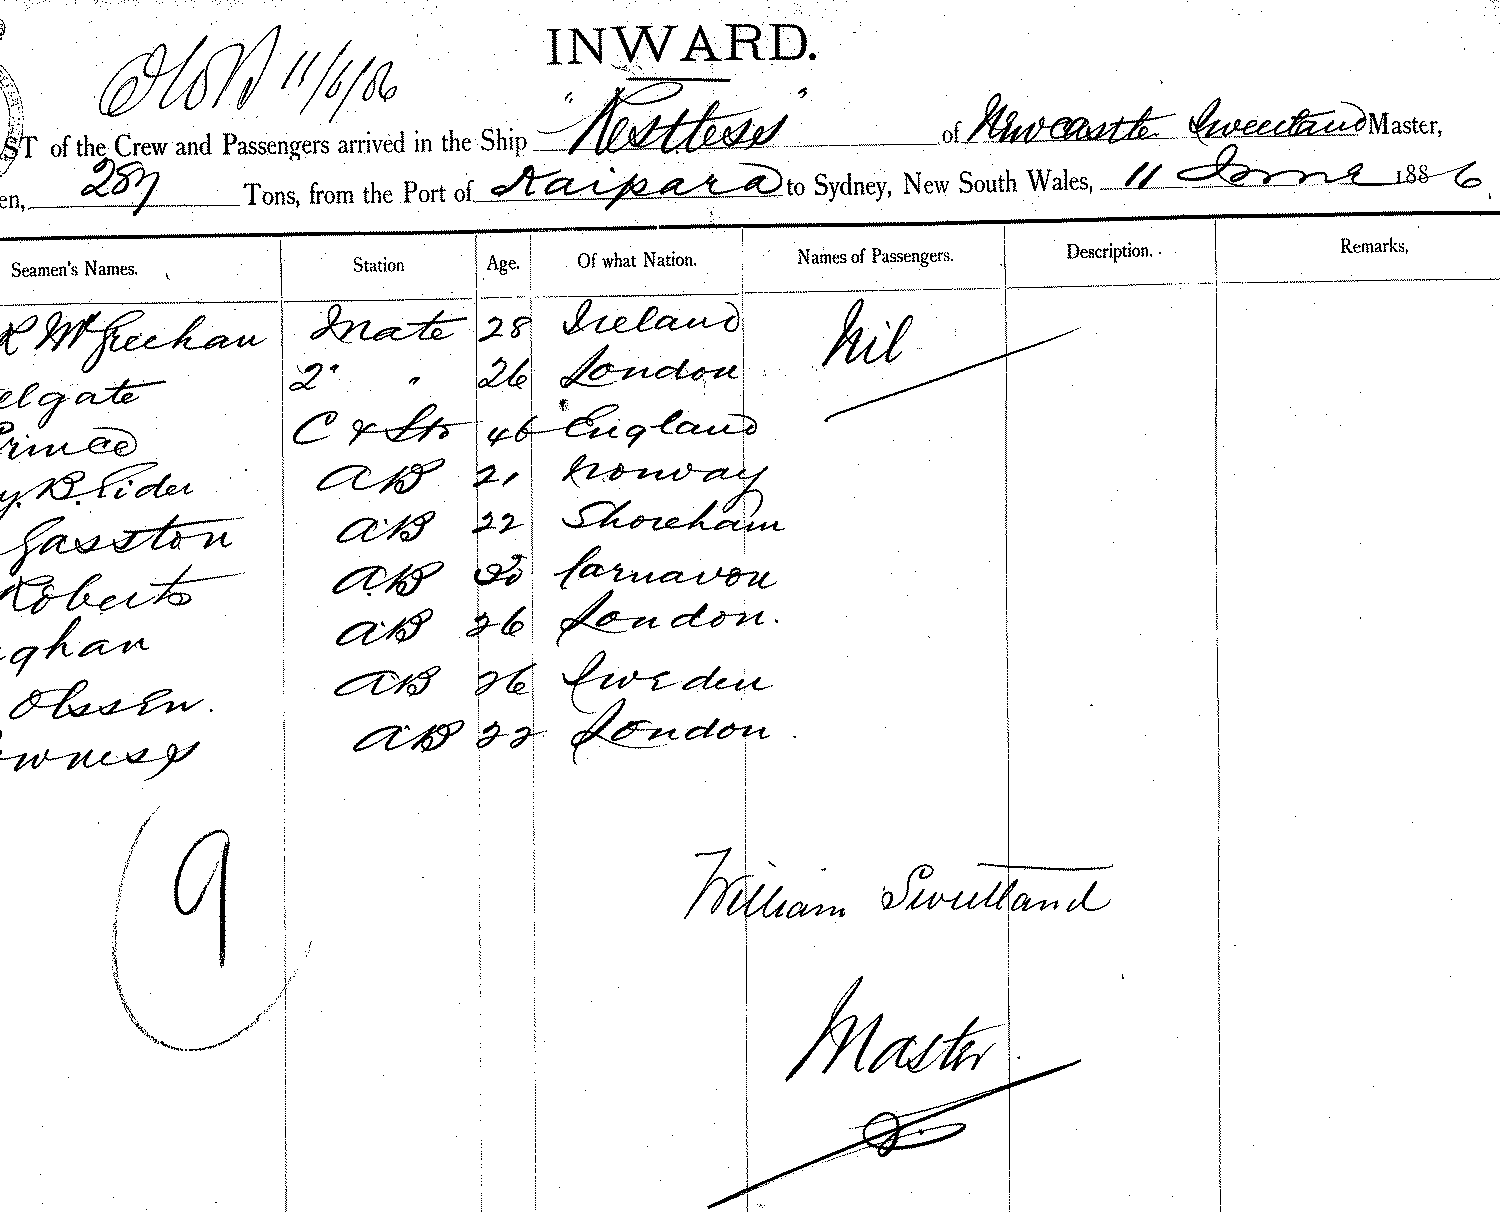 INWARD.
11/6/86
ST of the Crew and Passengers arrived in the Ship "Restless" of Newcastle Sweetland Master,
en, 287 Tons, from the Port of Kaipara to Sydney, New South Wales, 11 June 1886.
Seamen's Names. Station Age. Of what Nation. Names of Passengers. Description. Remarks,
R McGreehan Mate 28 Ireland Nil
elgate 2" " 26 London
Prince C & Std 46 England
y. B. Eider AB 21 Norway
Gasston AB 22 Shoreham
Roberts AB Carnavon
ghan AB 26 London.
Olssen. AB 26 Sweden
owness AB 22 London.
9
William Sweetland
Master